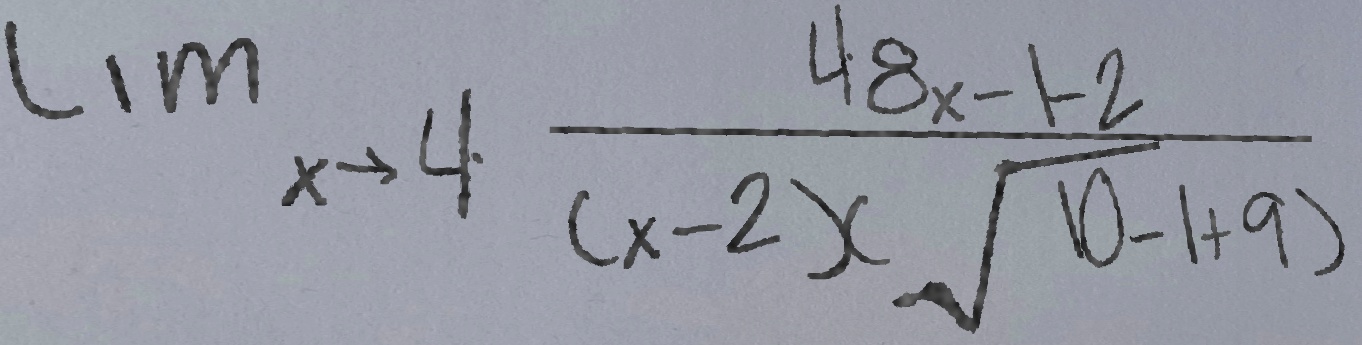 lim x→4 \frac{48x-1-2}{(x-2)(\sqrt{10-1+9})}